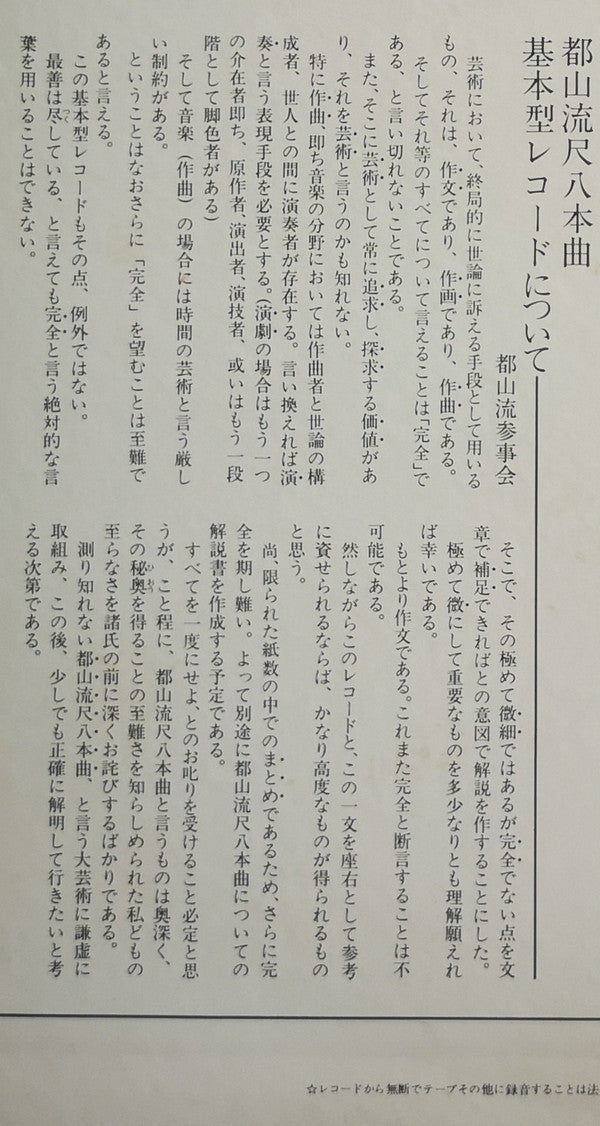 都山流尺八本曲
基本型レコードについて
都山流参事会
芸術において、終局的に世論に訴える手段として用いる
もの、それは、作文であり、作画であり、作曲である。
そしてそれ等のすべてについて言えることは「完全」で
ある、と言い切れないことである。
また、そこに芸術として常に追求し、探求する価値があ
り、それを芸術と言うのかも知れない。
特に作曲、即ち音楽の分野においては作曲者と世論の構
成者、世人との間に演奏者が存在する。言い換えれば演
奏と言う表現手段を必要とする。(演劇の場合はもう一つ
の介在者即ち、原作者、演出者、演技者、或いはもう一段
階として脚色者がある)
そして音楽(作曲)の場合には時間の芸術と言う厳し
い制約がある。
ということはなおさらに「完全」を望むことは至難で
あると言える。
この基本型レコードもその点、例外ではない。
最善は尽つくしている、と言えても完全と言う絶対的な言
葉を用いることはできない。
そこで、その極めて微細ではあるが完全でない点を文
章で補足できればとの意図で解説を作することにした。
極めて微にして重要なものを多少なりとも理解願えれ
ば幸いである。
もとより作文である。これまた完全と断言することは不
可能である。
然しながらこのレコードと、この一文を座右として参考
に資せられるならば、かなり高度なものが得られるもの
と思う。
尚、限られた紙数の中でのまとめであるため、さらに完
全を期し難い。よって別途に都山流尺八本曲についての
解説書を作成する予定である。
すべてを一度にせよ、とのお叱りを受けること必定と思
うが、こと程に、都山流尺八本曲と言うものは奥深く、
その秘奥ひおうを得ることの至難さを知らしめられた私どもの
至らなさを諸氏の前に深くお詫びするばかりである。
測り知れない都山流尺八本曲、と言う大芸術に謙虚に
取組み、この後、少しでも正確に解明して行きたいと考
える次第である。
☆レコードから無断でテープその他に録音することは法